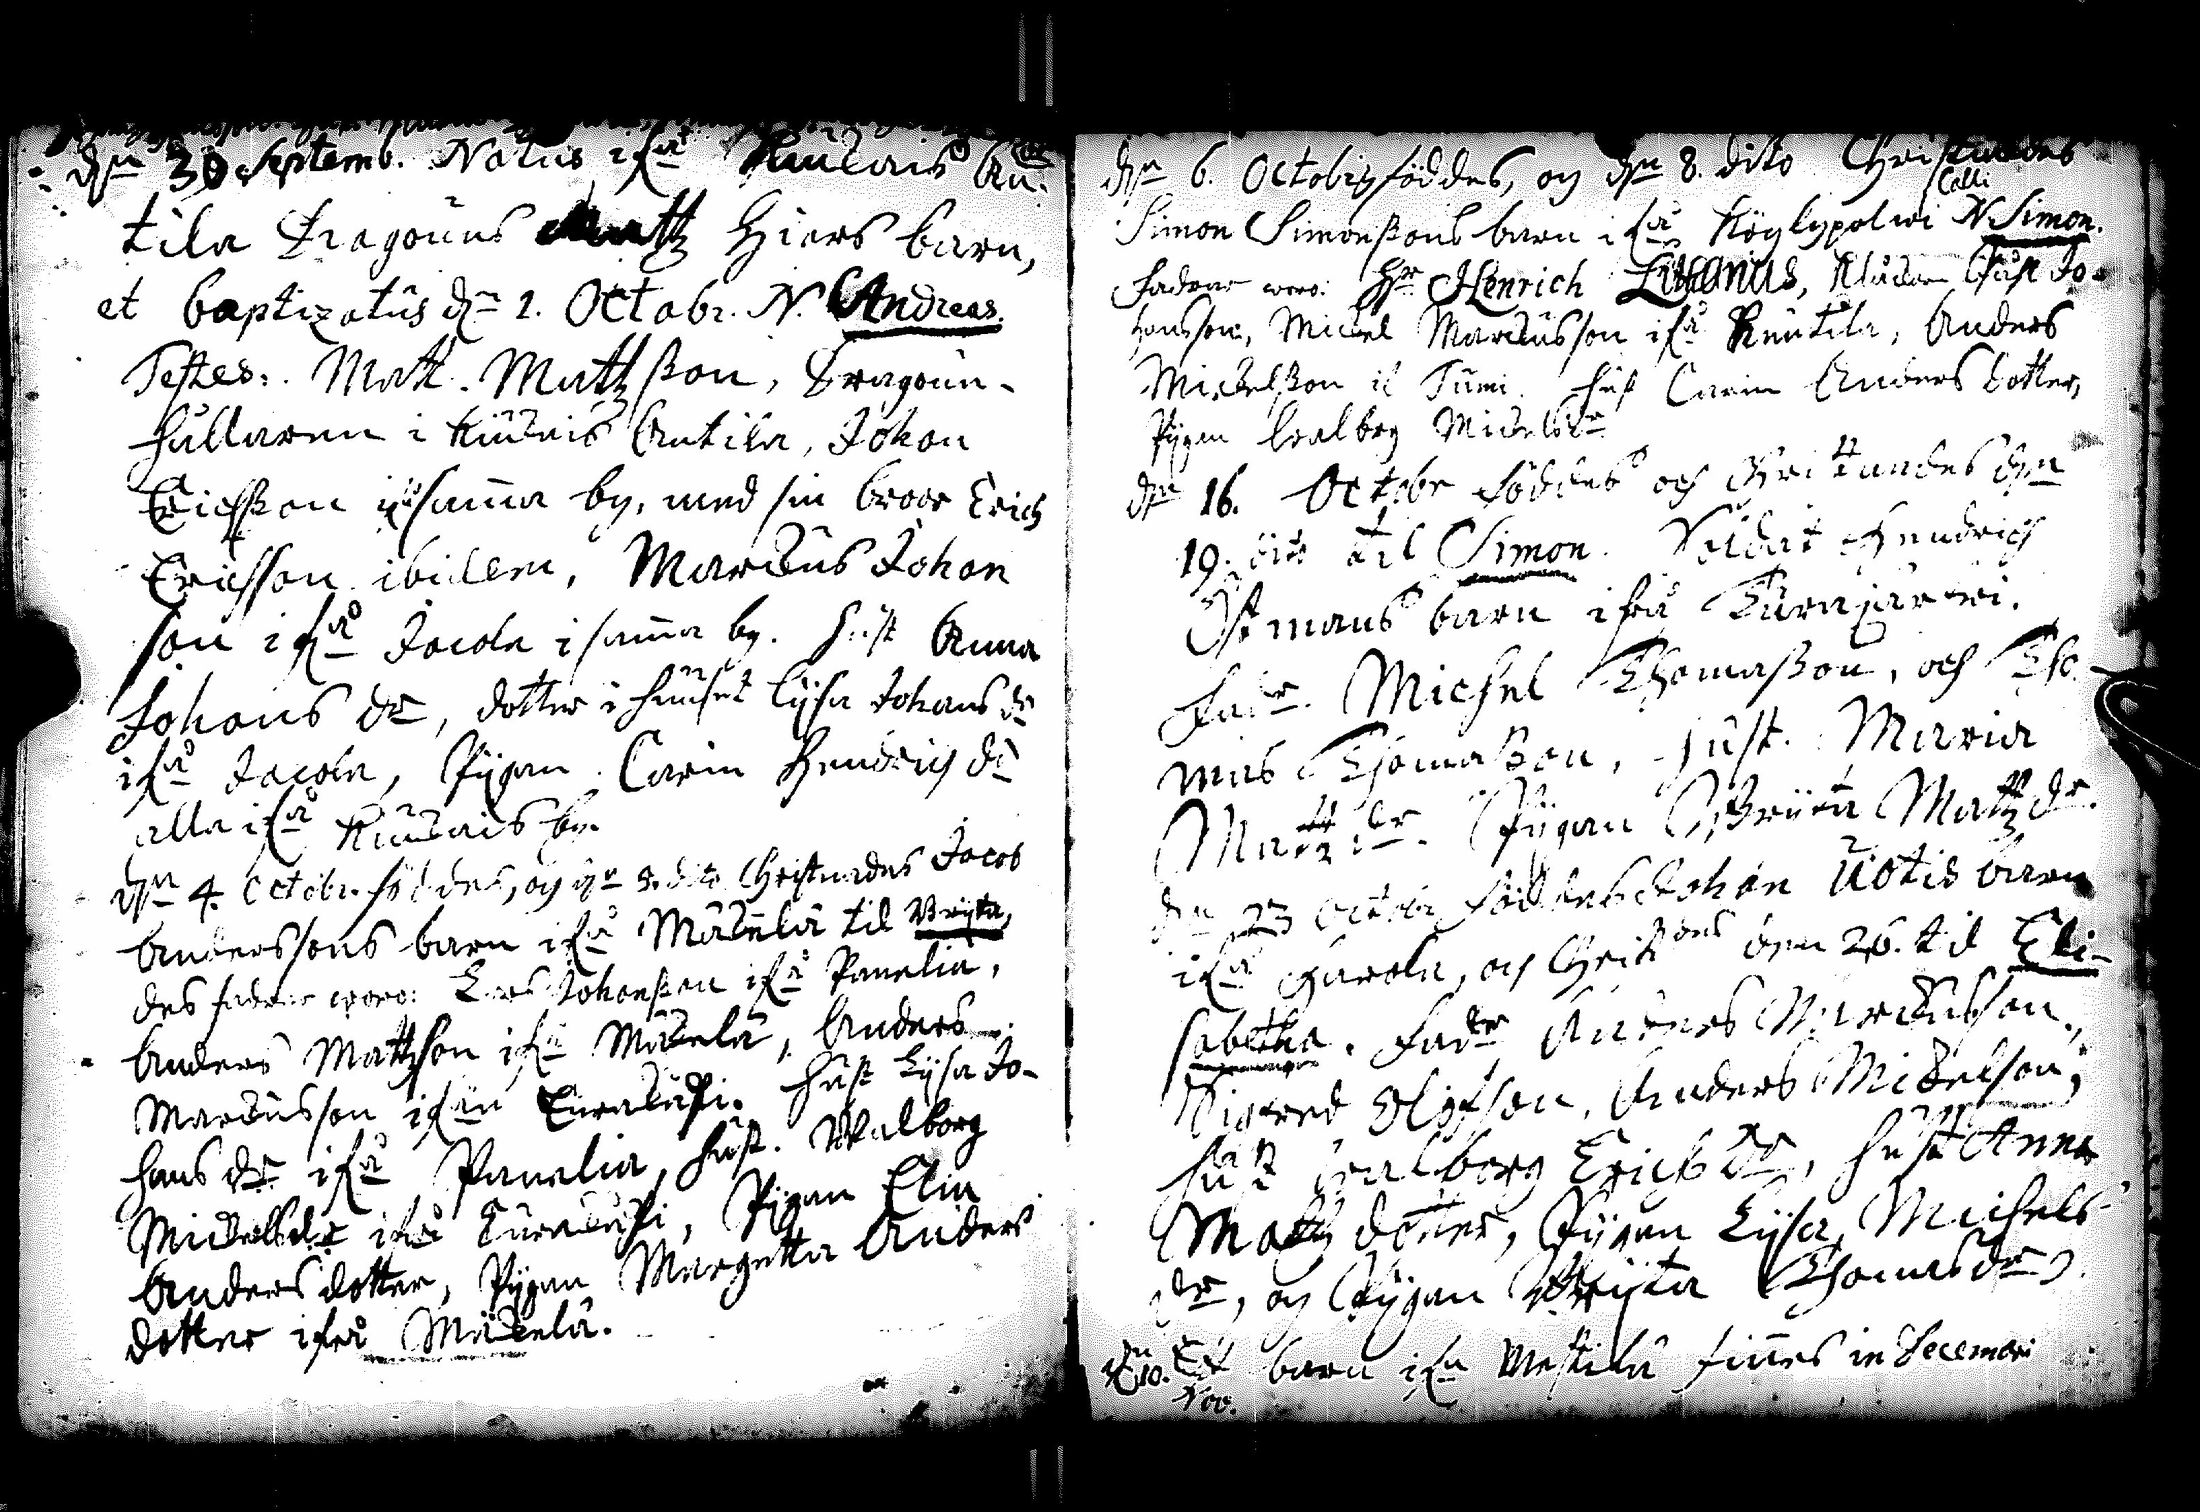 dn 30 Septemb. Natus ifrå Kiukais An-
tila Dragouns Matz Hiers barn,
et baptizatus dn 1. Octobr. N. Andreas.
Testes: Matt. Matzßon, Dragoun-
hållaren i Kiukais Antila, Johan
Erichßon i samma by, med sin broor Erich
Erichsson ibidem, Marckus Johan
son ifrå Jacola i samma by. Hust Anna
Johans dr, dotter i huuset Lijsa Johans dr
ifrå Jacola, Pigan Carin Hendrich dr
alla ifrå Kiukais by.
dn 4. Octobr. föddes, och dn 5. dito Christnades Jacob
Anderssons barn ifrå Mäckelä til Brijta,
des fadrar woro: Lars Johanßon ifrå Panelia,
Anders Matzson ifrå Mäckelä, Anders
Marckusson ifrån Eurakåski. Hust Lijsa Jo-
hans dr ifrå Panelia, hust. Walborg
Mickelsdr ifrå Eurakåski, Pigan Elin
Anders dotter, Pigan Margetta Anders
dotter ifrå Mäckelä.
dn 6. Octobris föddes, och dn 8. dito Christnades
Simon Simonßons barn i frå Köylypolwi N Simon.
Fadrar woro: Hr Henrich Jo-
hansson, Mickel Marckusson ifrå Räutila, Anders
Mickelßon i Tumi. Hust Carin Anders dotter,
Pigan Walborg Mickelsdr
dn 16. Octobr föddes och Christnades dn
19. dito til Simon. Soldat Hendrich
Östmans barn ifrå Turajärwi.
Fadr. Michel Thomaßon, och Tho-
mas Thomaßon, Hust. Maria
Matz dr. Pigan Brijta Matz dr.
dn 23 Octobr föddes Johan Uotis barn
ifrå Harola, och Christdes den 26. til Eli-
sabetha. Fadr Anders Marckusson,
Sigfred Olofson, Anders Mickelson,
Hust Walborg Erichs dr, Hust Anna
Matz dotter, Pigan Lijsa Michels
dr, och Pigan Brijta Thomasdr
dn 10. Nov. Et barn ifrå Mestilä finnes in Decembri